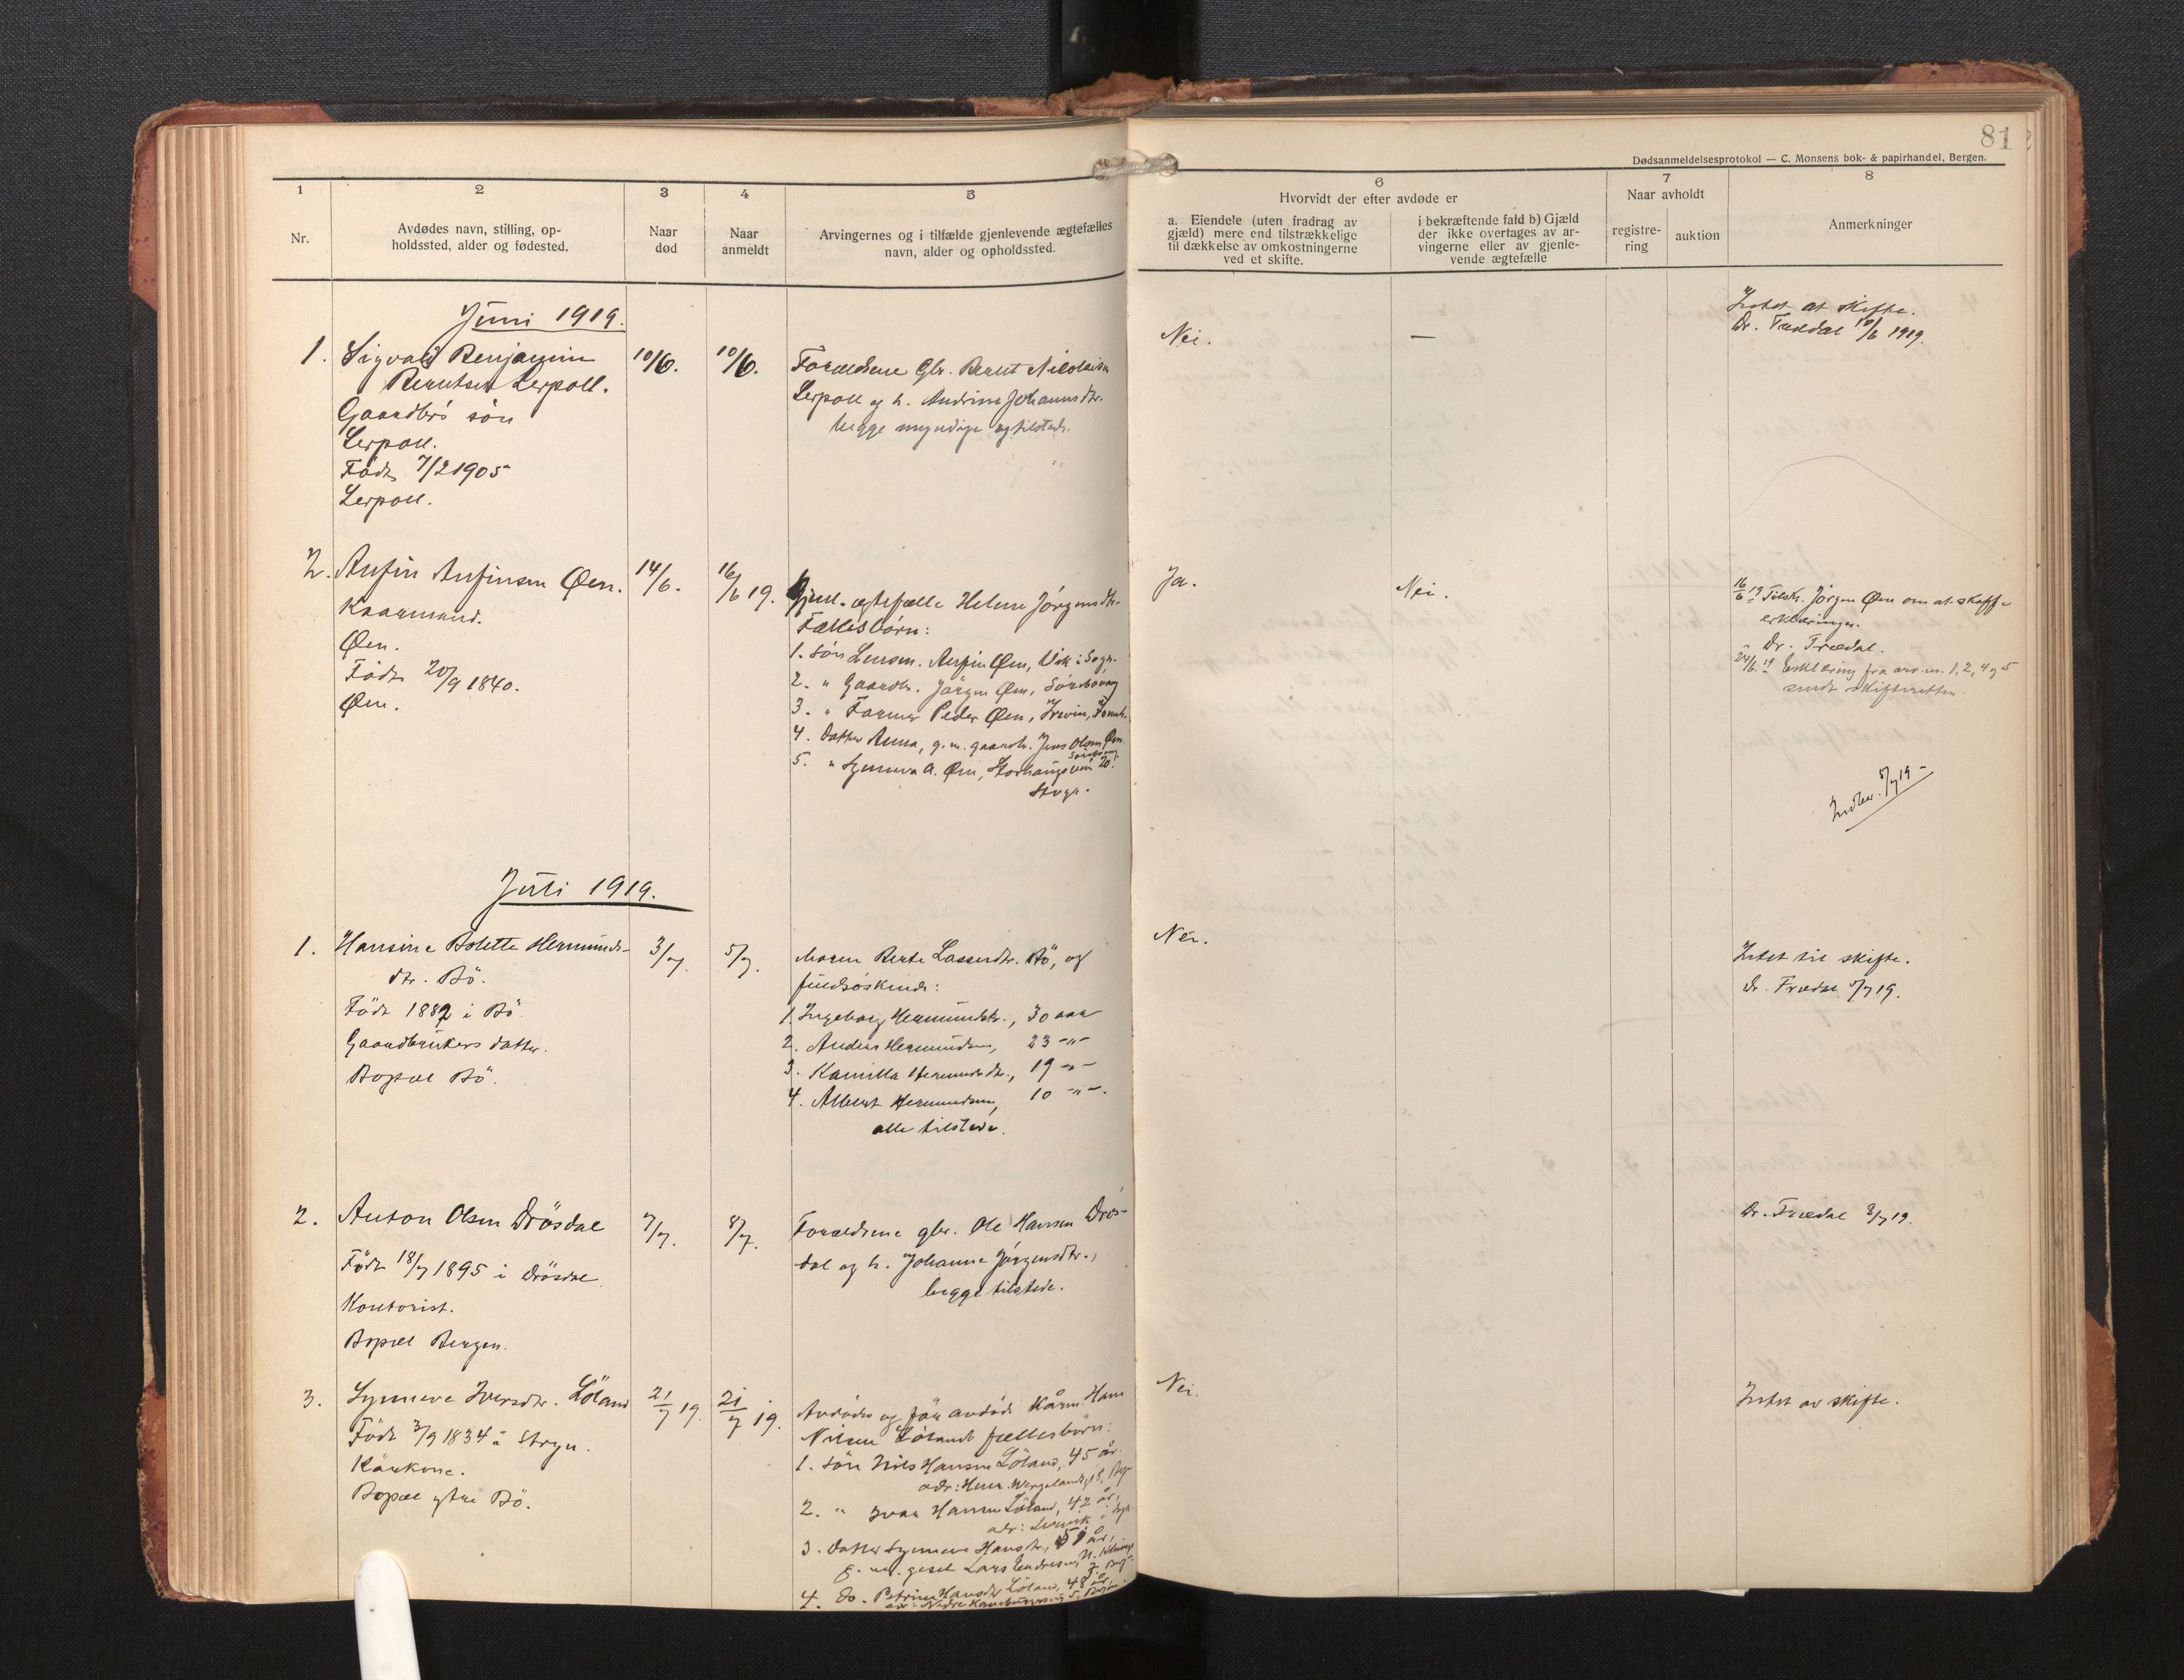 81
Dødsanmeldelsesprotokol — C. Monsens bok- & papirhandel, Bergen.
1
2
3
4
5
6
7
8
Nr.
Avdødes navn, stilling, op-
holdssted, alder og fødested.
Naar
død
Naar
anmeldt
Arvingernes og i tilfælde gjenlevende ægtefælles
navn, alder og opholdssted.
Hvorvidt der efter avdøde er
a. Eiendele (uten fradrag av
gjæld) mere end tilstrækkelige
til dækkelse av omkostningerne
ved et skifte.
i bekræftende fald b) Gjæld
der ikke overtages av ar-
vingerne eller av gjenle-
vende ægtefælle
Naar avholdt
registre-
ring
auktion
Anmerkninger
Juni 1919.
1.
Sigvald Benjamin
Berntsen Lerpoll.
Gaardbr's søn
Lerpoll.
Født 7/2 1905
Lerpoll.
10/6.
10/6.
Forældrene Gbr. Bernt Nicolaisen
Lerpoll og h. Andrine Johannsdtr.
begge myndige og tilstede.
Nei.
—
Intet at skifte.
Dr. Frædal 10/6 1919.
2.
Anfin Anfinsen Øen.
Kaarmand.
Øen.
Født 20/9 1840.
Øen.
14/6.
16/6 19.
Gjenl. ægtefælle Helene Jørgensdtr.
Fællesbörn:
1. Sön Lensm. Anfin Øen, Vik i Sogn.
2. " Gaardbr. Jörgen Øen,
3. " Farmer Peder Øen,
4. Datter Anna, g. m. gaardb. Jens Olsen Øen
5. " Synneva A. Øen, Storhaugveien 20.
Stvgr.
Ja.
Nei.
16/6 19 Tilskr. Jørgen Øen om at skaffe
erklæringer.
Dr. Frædal.
24/6 19 Erklæring fra arv. nr. 1, 2, 4 og 5
sendt skifteretten.
Indber. 5/7 19
Juli 1919.
1.
Hansine Bolette Hermunds-
dtr. Bö.
Född 1882 i Bö.
Gaardbrukers datter.
Bopæl Bö.
3/7.
5/7.
Moren Berte Lassesdtr. Bö, og
fuldsöskende:
1. Ingeborg Hermundsdtr., 30 aar
2. Anders Hermundsen, 23 -"-
3. Kamilla Hermundsdtr., 19 -"-
4. Albert Hermundsen, 10 -"-.
alle tilstede.
Nei.
Intet til skifte.
Dr. Frædal 5/7 19.
2.
Anton Olsen Drösdal
Født 18/7 1895 i Drösdal.
Kontorist.
Bopæl Bergen.
7/7.
8/7.
Forældrene gbr. Ole Hansen Drös-
dal og h. Johanne Jörgensdtr.,
begge tilstede.
Dr. Frædal 8/7 19.
3.
Synneve Iversdtr. Löland
Född 3/9 1834 i Stryn.
Kårkone.
Bopæl ytre Bö.
21/7 19.
21/7 19.
Avdödes og för avdöde Kårm. Hans
Nilsen Lölands fællesbörn:
1. Sön Nils Hansen Löland, 45 år.
adr: Henr. Wergelandsg. 18,
2. " Ivar Hansen Löland, 42 år,
adr:
3. Datter Synneve Hansdtr., 51 år,
g. m. gesel Lars Endresen,
4. Do. Petrine Hansdtr Löland, 48 år
adr:
Nei.
Intet av skifte.